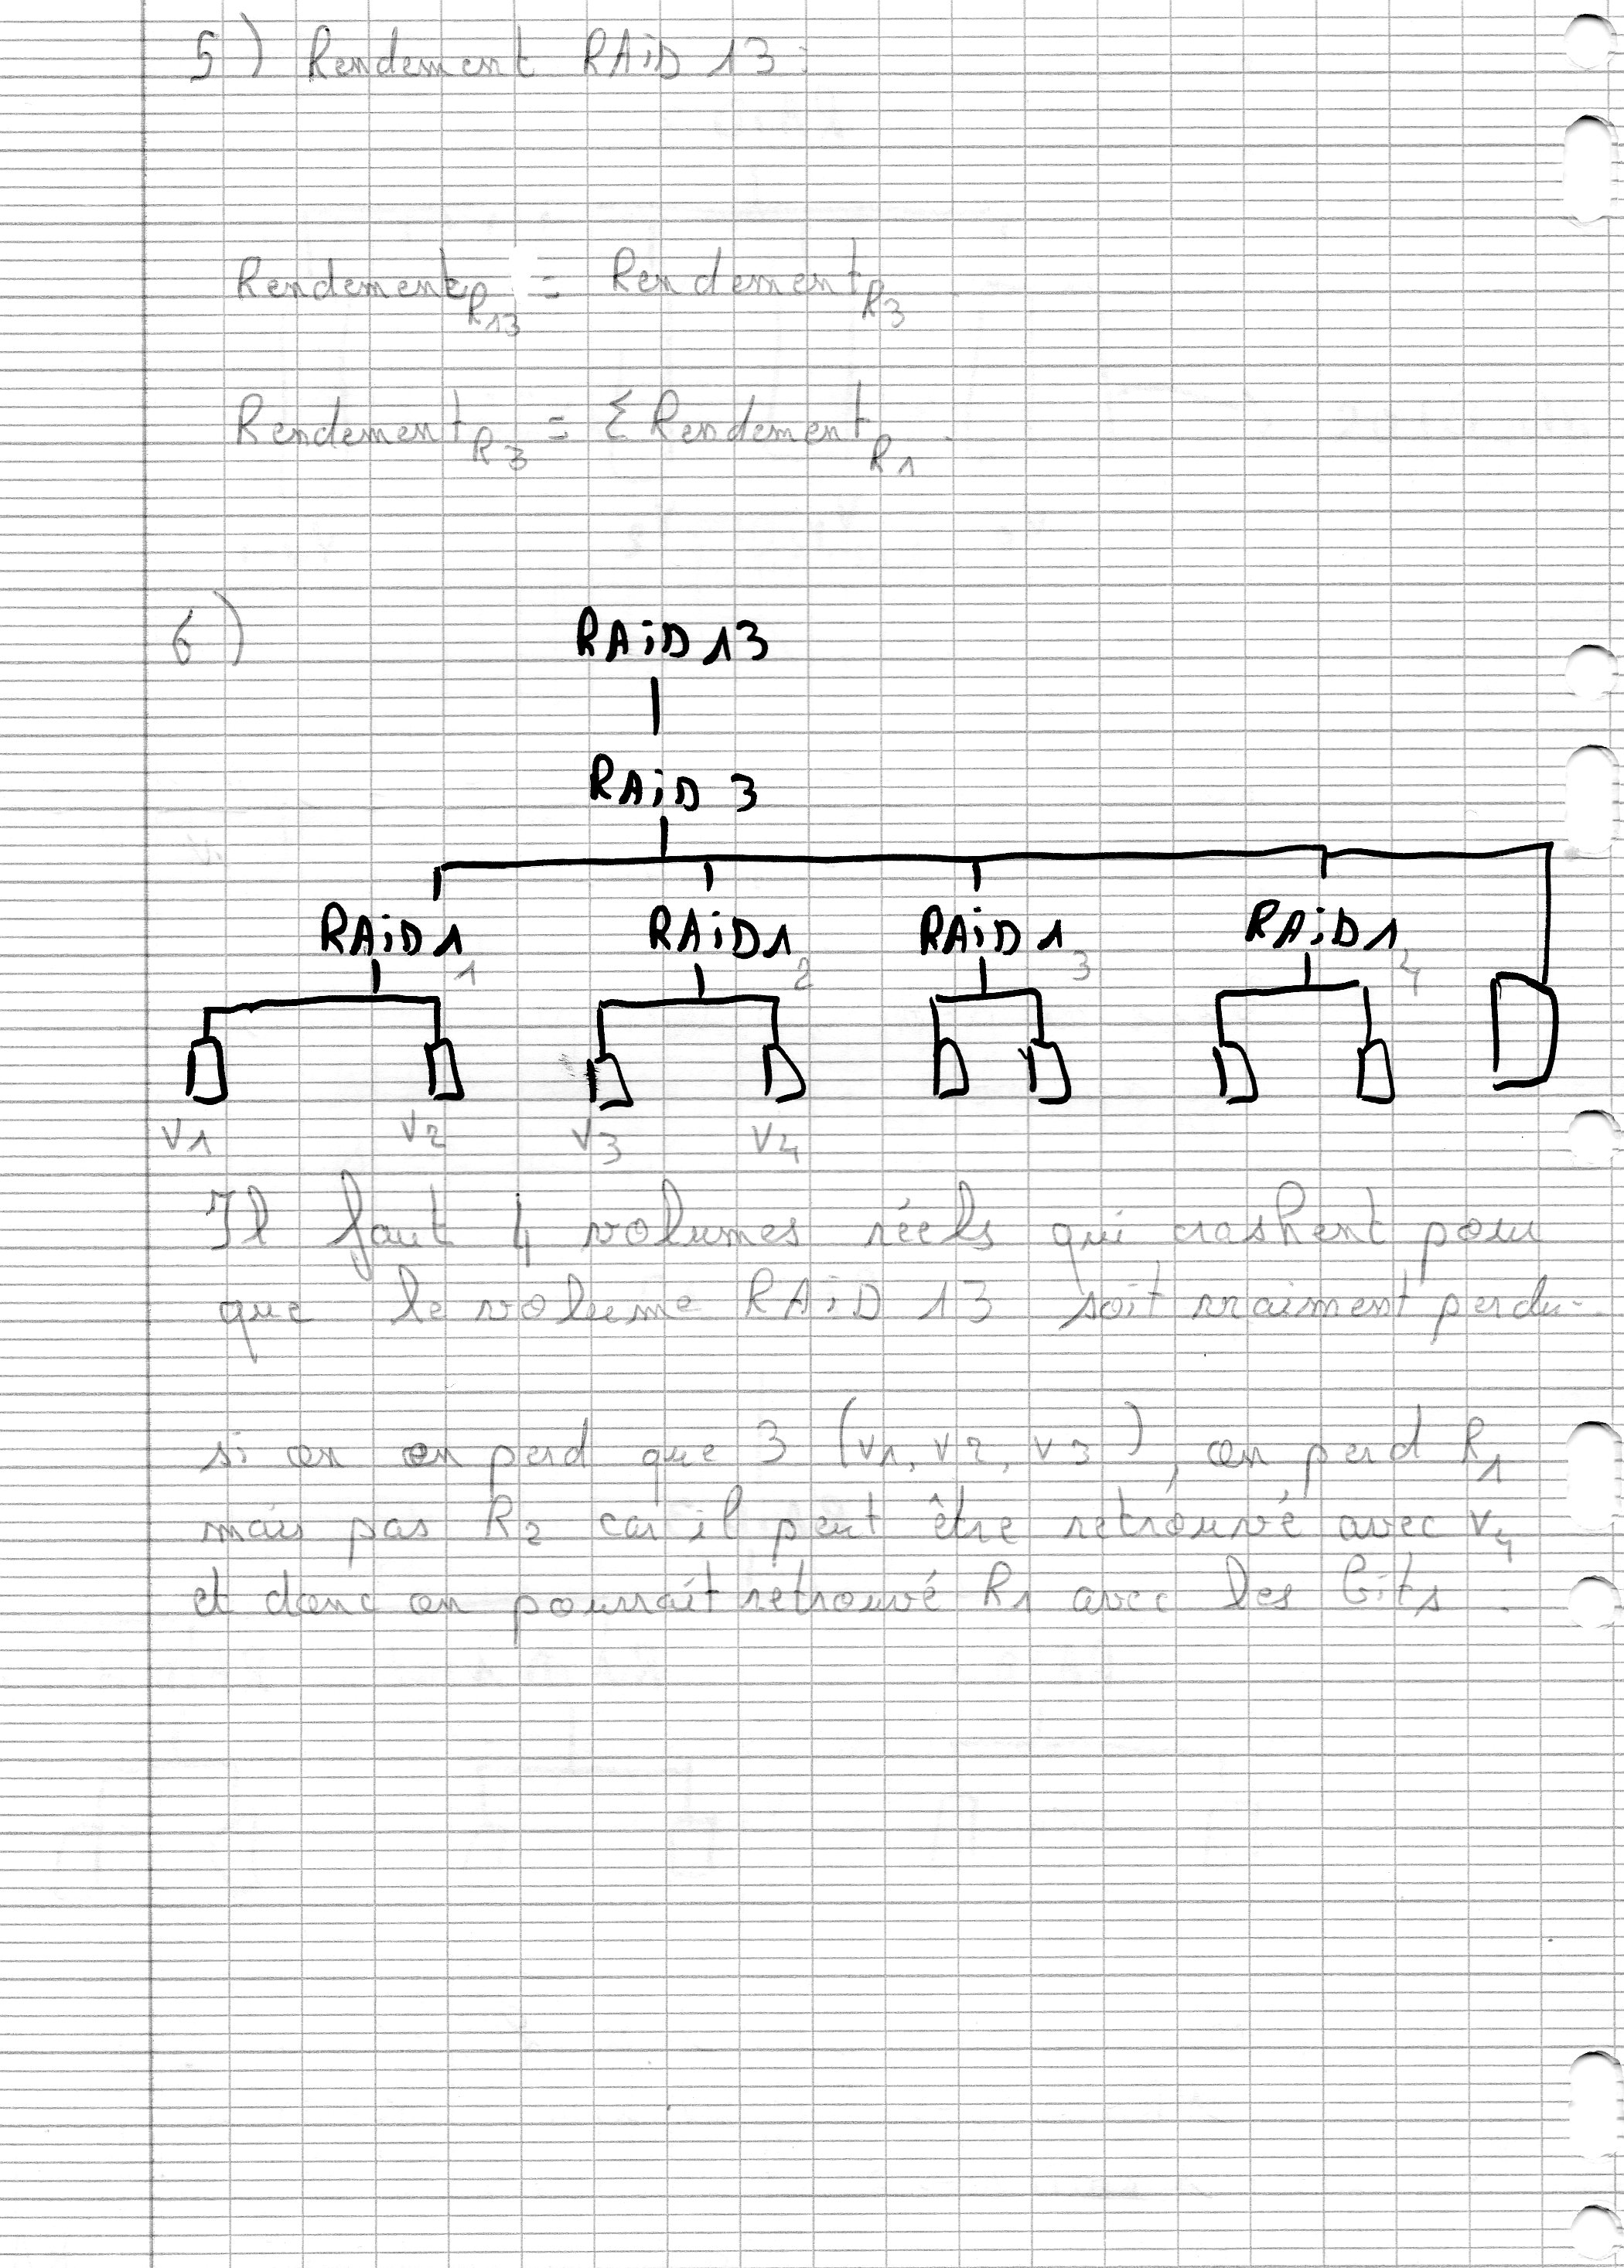 5) Rendement RAiD 13:
Rendement R13 = Rendement R3
Rendement R3 = Σ Rendement R1
6)
RAiD 13
RAiD 3
RAiD1 1 RAiD1 2 RAiD 1 3 RAiD1 4
V1 V2 V3 V4
Il faut 4 volumes réels qui crashent pour
que le volume RAiD 13 soit vraiment perdu.
si on en perd que 3 (V1, V2, V3), on perd R1
mais pas R2 car il peut être retrouvé avec V4
et donc on pourrait retrouvé R1 avec les bits.